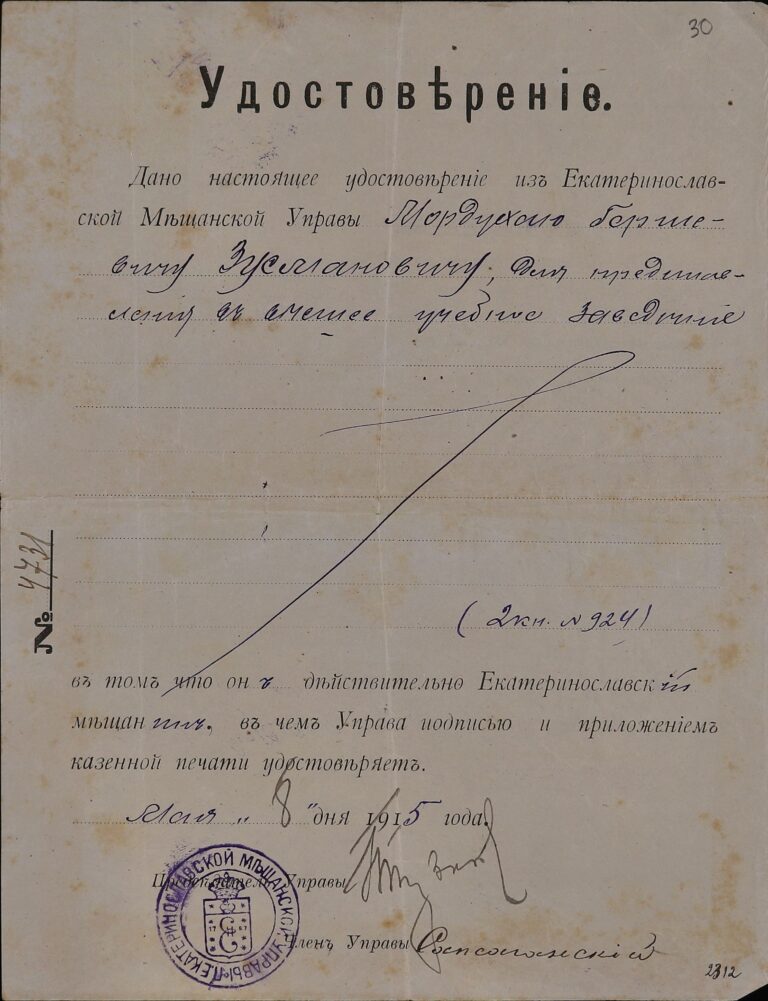 30
Удостовѣреніе.
Дано настоящее удостовѣреніе изъ Екатеринослав-
ской Мѣщанской Управы Мордухаю Берше-
вичу Зусмановичу, для представ-
ленія въ высшее учебное заведеніе
(2 кн. № 924)
въ томъ что онъ дѣйствительно Екатеринославскій
мѣщанинъ, въ чемъ Управа подписью и приложеніемъ
казенной печати удостовѣряетъ.
Мая „ 8 " дня 1915 года.
Предсѣдатель Управы
Членъ Управы
№ 4731
ЕКАТЕРИНОСЛАВСКОЙ МѢЩАНСКОЙ УПРАВЫ
2312